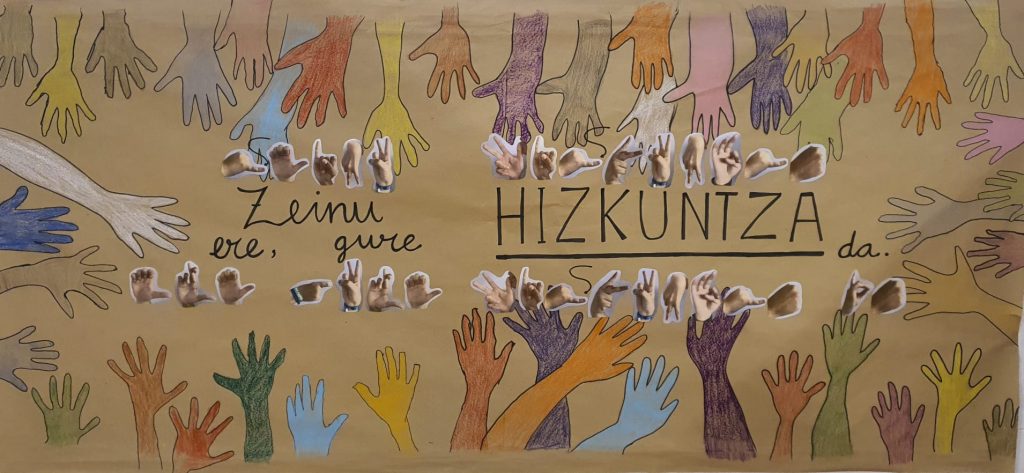 Zeinu HIZKUNTZA
ere, gure da.